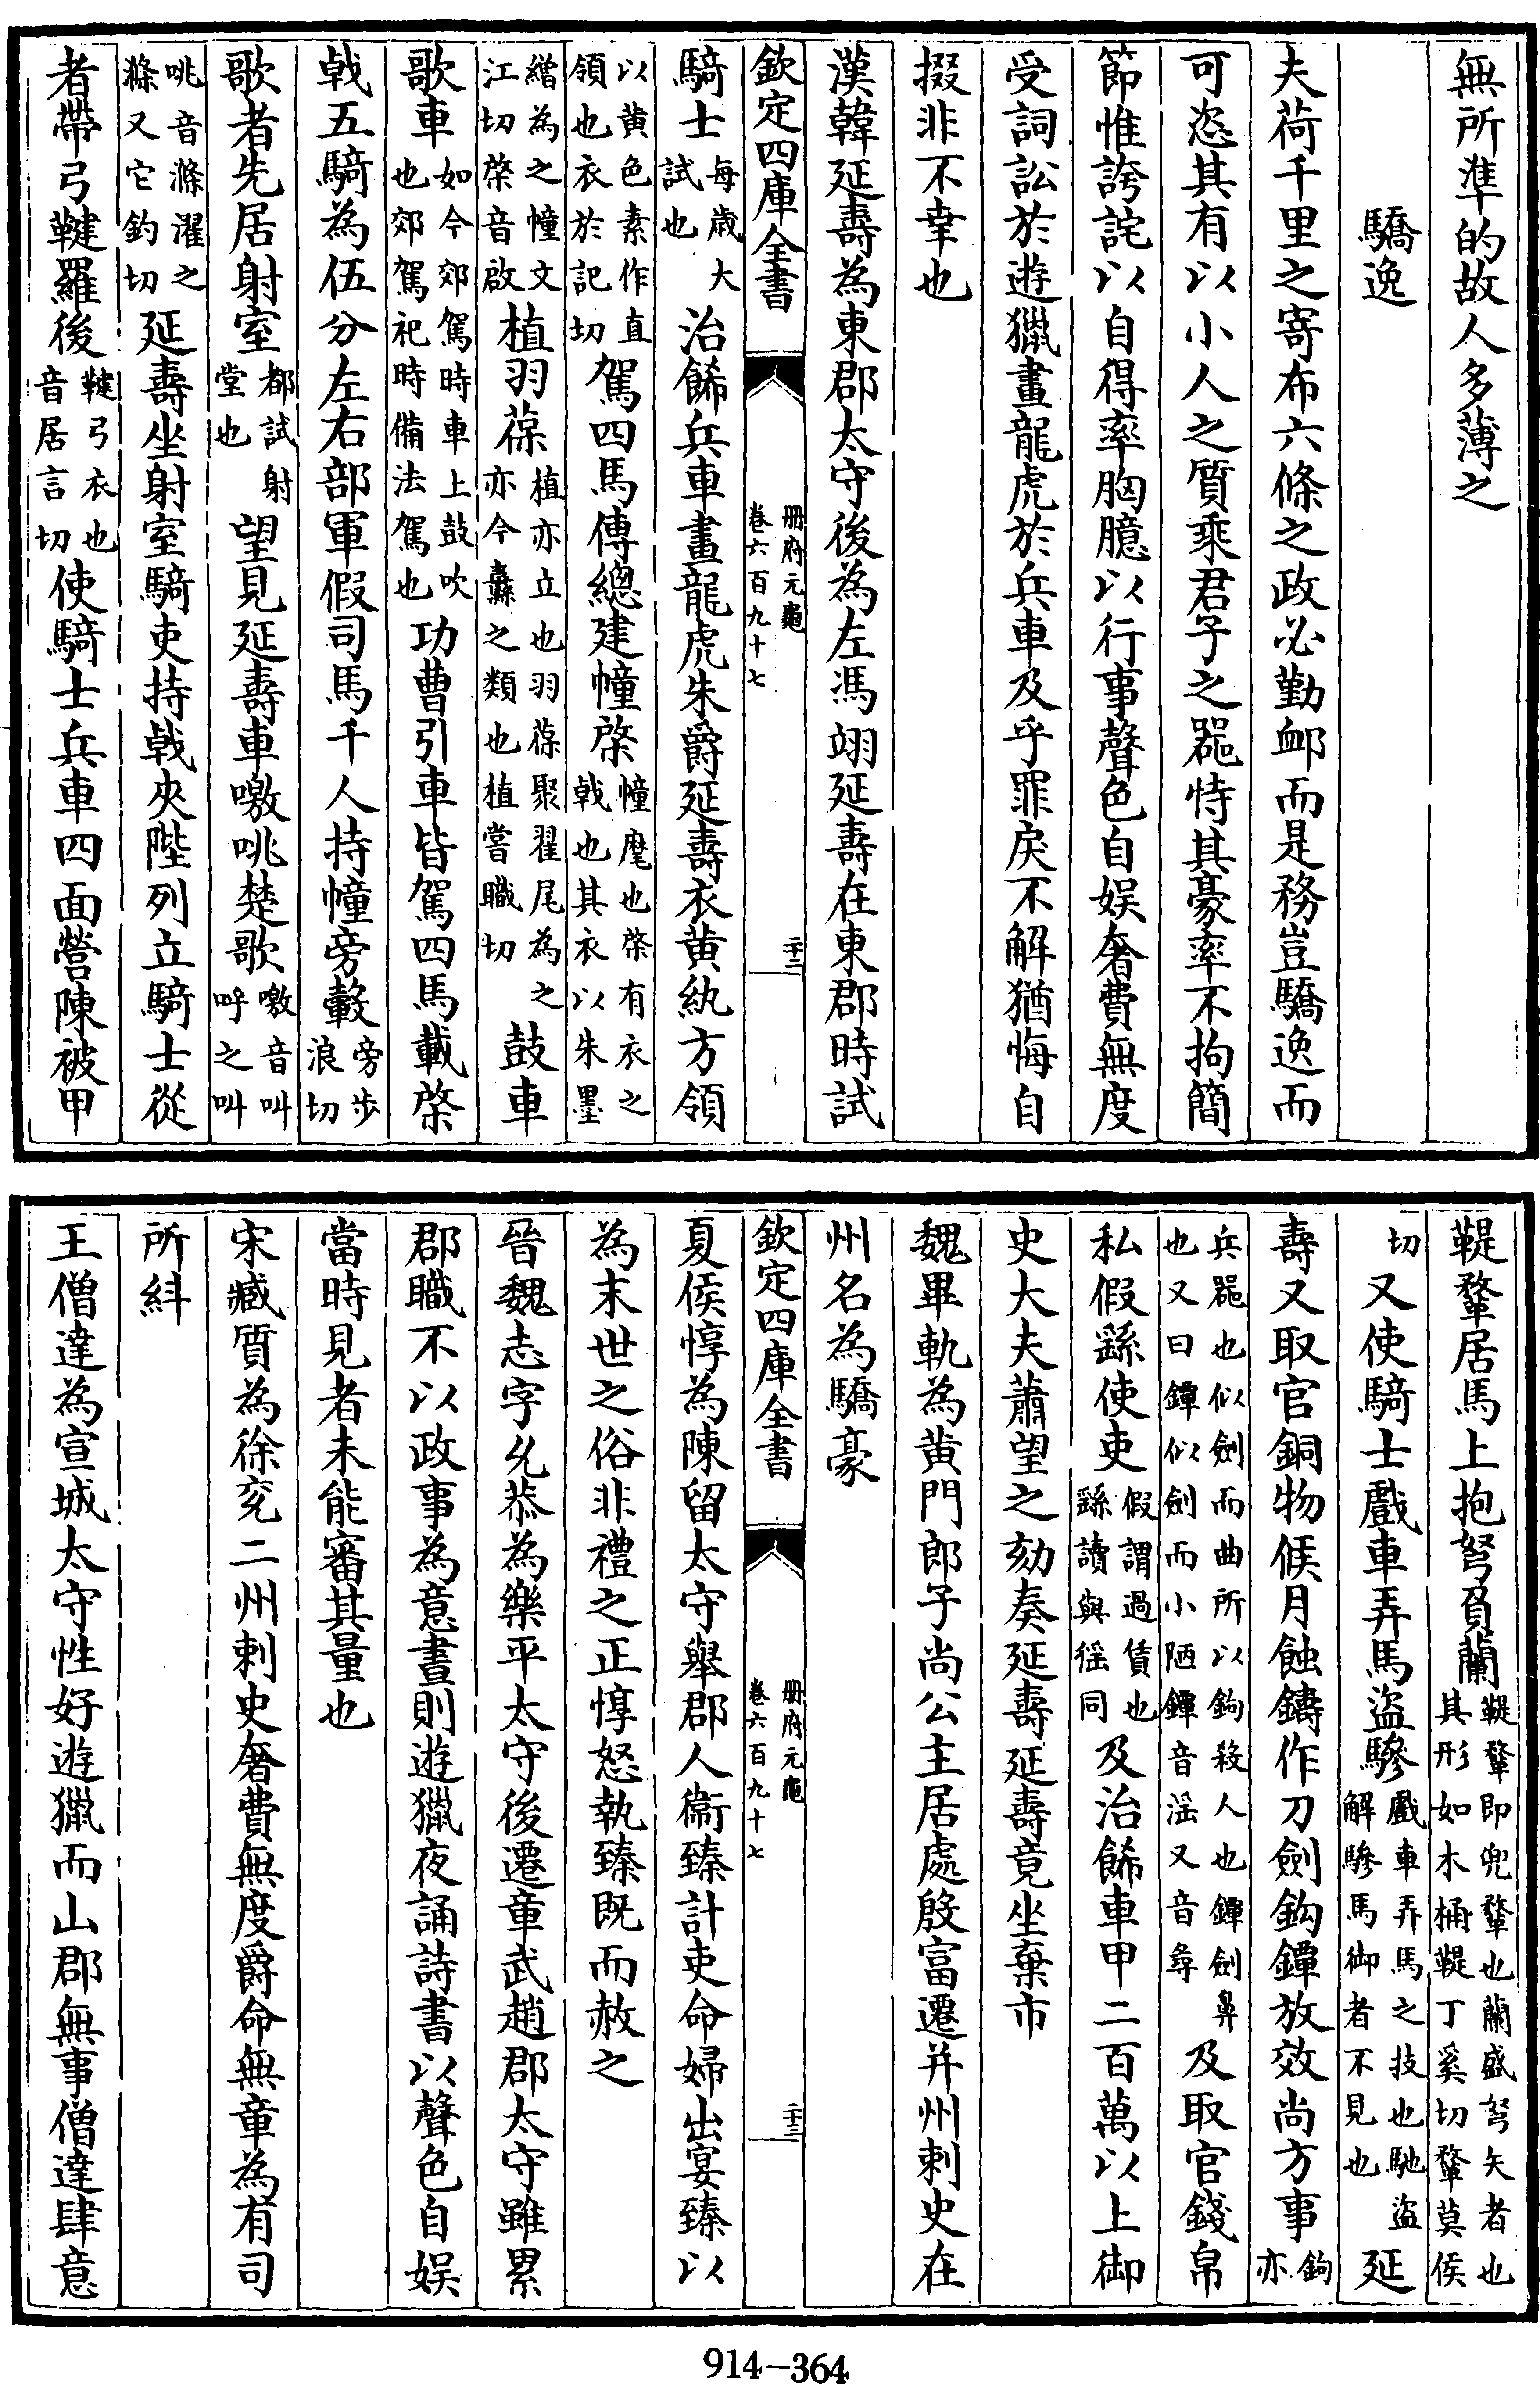 無所準的故人多薄之
驕逸
夫荷千里之寄布六條之政必勤䘏而是務豈驕逸而
可恣其有以小人之質乘君子之器恃其豪率不拘簡
節惟誇詫以自得率胸臆以行事聲色自娱奢費無度
受詞訟於遊獵畫龍虎於兵車及乎罪戾不解猶悔自
掇非不幸也
漢韓延壽為東郡太守後為左馮翊延壽在東郡時試
欽定四庫全書
冊府元龜
卷六百九十七
二十二
騎士每歲大試也治飾兵車畫龍虎朱爵延壽衣黄紈方領
以黄色素作直領也衣於記切駕四馬傅總建幢棨幢麾也棨有衣之戟也其衣以朱墨
繒為之幢文江切棨音啟植羽葆植亦立也羽葆聚翟尾為之亦今纛之類也植嘗職切鼓車
歌車如今郊駕時車上鼓吹也郊駕祀時備法駕也功曹引車皆駕四馬載棨
戟五騎為伍分左右部軍假司馬千人持幢旁轂旁步浪切
歌者先居射室都試射堂也望見延壽車噭咷楚歌噭音叫呼之叫
咷音滌濯之滌又它釣切延壽坐射室騎吏持戟夾陛列立騎士從
者帶弓鞬羅後鞬弓衣也音居言切使騎士兵車四面營陳被甲
鞮鞪居馬上抱弩負蘭鞮鞪即兜鞪也蘭盛弩矢者也其形如木桶鞮丁奚切鞪莫侯
切又使騎士戲車弄馬盜驂戲車弄馬之技也馳盜解驂馬御者不見也延
壽又取官銅物候月蝕鑄作刀劍鈎鐔放效尚方事鉤亦
兵器也似劍而曲所以鉤殺人也鐔劍鼻也又曰鐔似劍而小陋鐔音淫又音尋及取官錢帛
私假繇使吏假謂過賃也繇讀與徭同及治飾車甲二百萬以上御
史大夫蕭望之劾奏延壽延壽竟坐棄市
魏畢軌為黄門郎子尚公主居處殷富遷并州刺史在
州名為驕豪
欽定四庫全書
冊府元龜
卷六百九十七
二十三
夏侯惇為陳留太守舉郡人衞臻計吏命婦出宴臻以
為末世之俗非禮之正惇怒執臻既而赦之
晉魏志字允恭為樂平太守後遷章武趙郡太守雖累
郡職不以政事為意晝則遊獵夜誦詩書以聲色自娱
當時見者未能審其量也
宋臧質為徐兖二州刺史奢費無度爵命無章為有司
所糾
王僧達為宣城太守性好遊獵而山郡無事僧達肆意
914-364